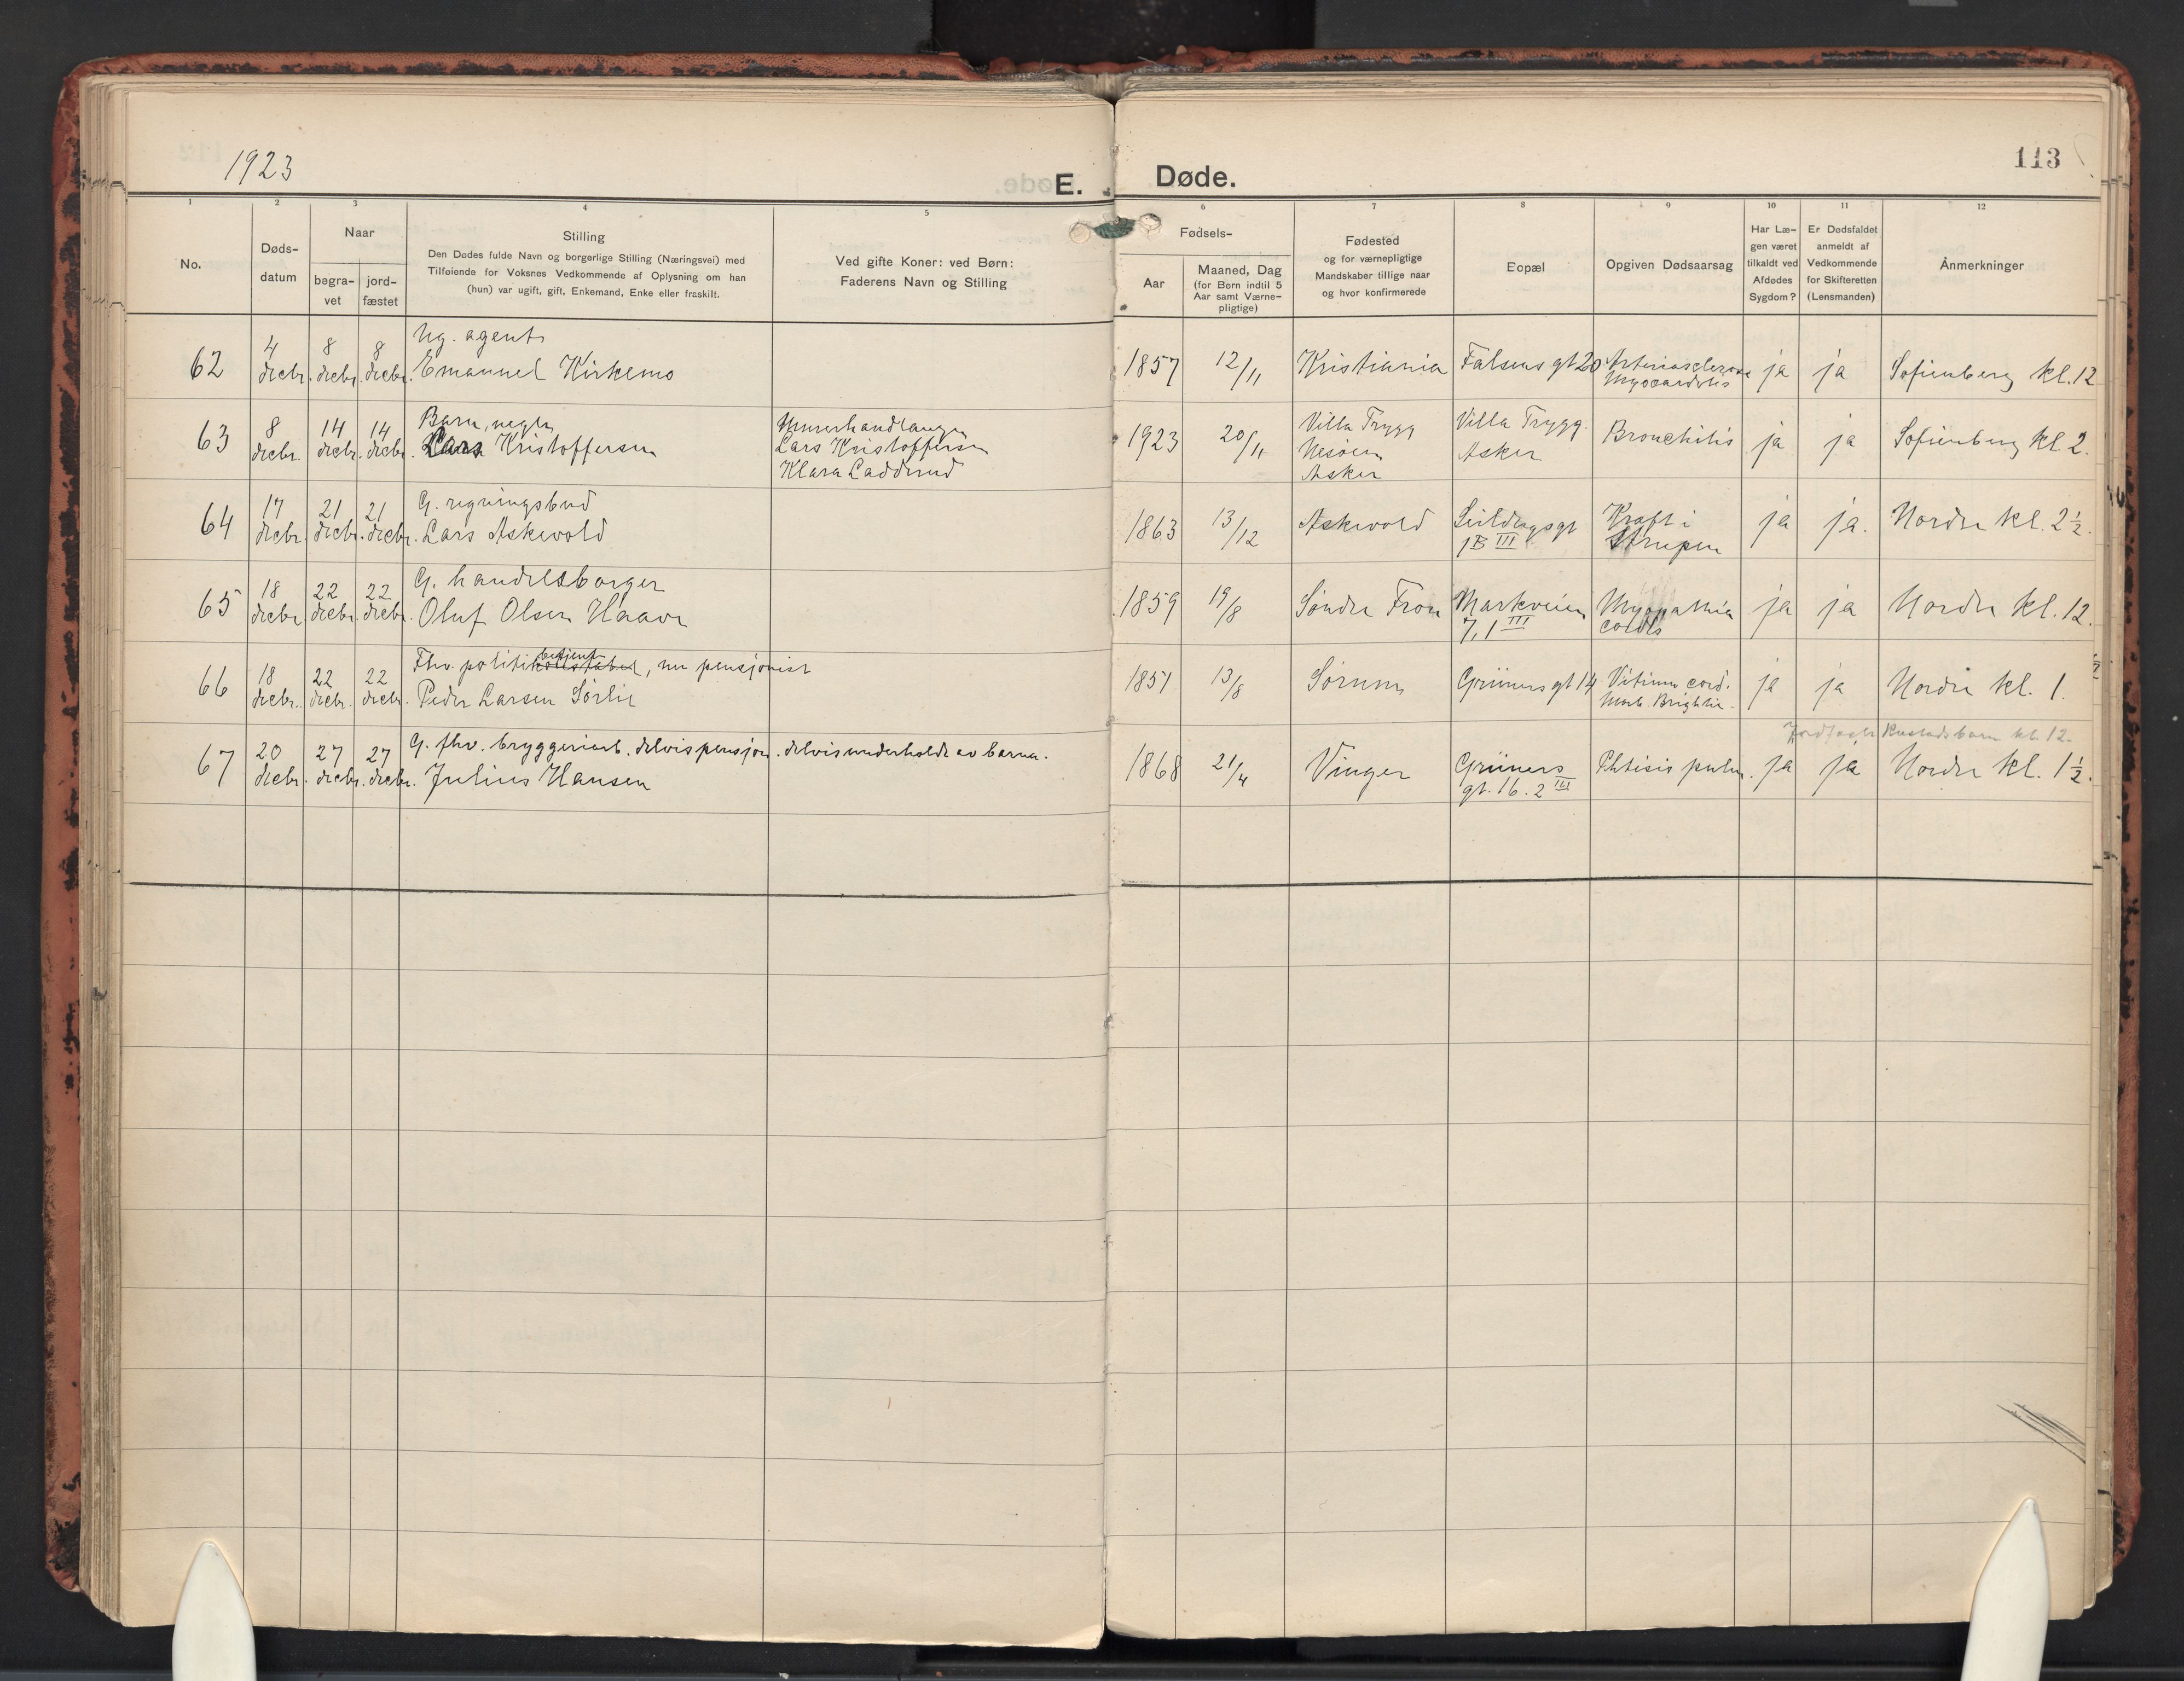 1923
E. Døde.
113
1 2 3 4 5 6 7 8 9 10 11 12
No.
Døds-
datum
Naar
begra-
vet
jord-
fæstet
Stilling
Den Dødes fulde Navn og borgerlige Stilling (Næringsvei) med
Tilføiende for Voksnes Vedkommende af Oplysning om han
(hun) var ugift, gift, Enkemand, Enke eller fraskilt.
Ved gifte Koner: ved Børn:
Faderens Navn og Stilling
Fødsels-
Aar
Maaned, Dag
(for Børn indtil 5
Aar samt Værne-
pligtige)
Fødested
og for værnepligtige
Mandskaber tillige naar
og hvor konfirmerede
Bopæl
Opgiven Dødsaarsag
Har Læ-
gen været
tilkaldt ved
Afdødes
Sygdom?
Er Dødsfaldet
anmeldt af
Vedkommende
for Skifteretten
(Lensmanden)
Anmerkninger
62
4 decbr.
8 decbr.
8 decbr.
Ug. agent
Emanuel Kirkemo
1857
12/11
Kristiania
Falsens gt 20
Arteriosclerose
Myocarditis
ja
ja
Sofienberg kl. 12
63
8 decbr.
14 decbr.
14 decbr.
Barn, uegte,
Lars Kristoffersen
Murerhandlanger
Lars Kristoffersen
Klara Ladderud
1923
20/11
Villa Trygg
Nesøen
Asker
Villa Trygg.
Asker
Bronchitis
ja
ja
Sofienberg kl 2.
64
17 decbr.
21 decbr.
21 decbr.
G. regningsbud
Lars Askevold
1863
13/12
Askevold
Seildugsgt
1B III
Kræft i
Strupen
ja
ja.
Nordre kl. 2½.
65
18 decbr.
22 decbr.
22 decbr.
G. handelsborger
Oluf Olsen Haave
1859
19/8
Søndre Fron
Markveien
7, 1 III
Myopathia
cordis
ja
ja
Nordre kl. 12.
66
18 decbr.
22 decbr.
22 decbr.
betjent
Fhv. politikonstabel, nu pensjonist
Peder Larsen Sørlie
1857
13/8
Sørum
Grüners gt 14
Vitium cord.
Morb. Brightii
ja
ja
Nordre kl. 1.
67
20 decbr.
27 decbr.
27 decbr.
G. fhv. bryggeriarb. delvis pensjon. delvis underholdt av barna.
Julius Hansen
1868
21/4
Vinger
Grüners
gt. 16. 2 III
Phtisis pulm.
ja
ja
kl. 12.
Nordre kl. 1½.